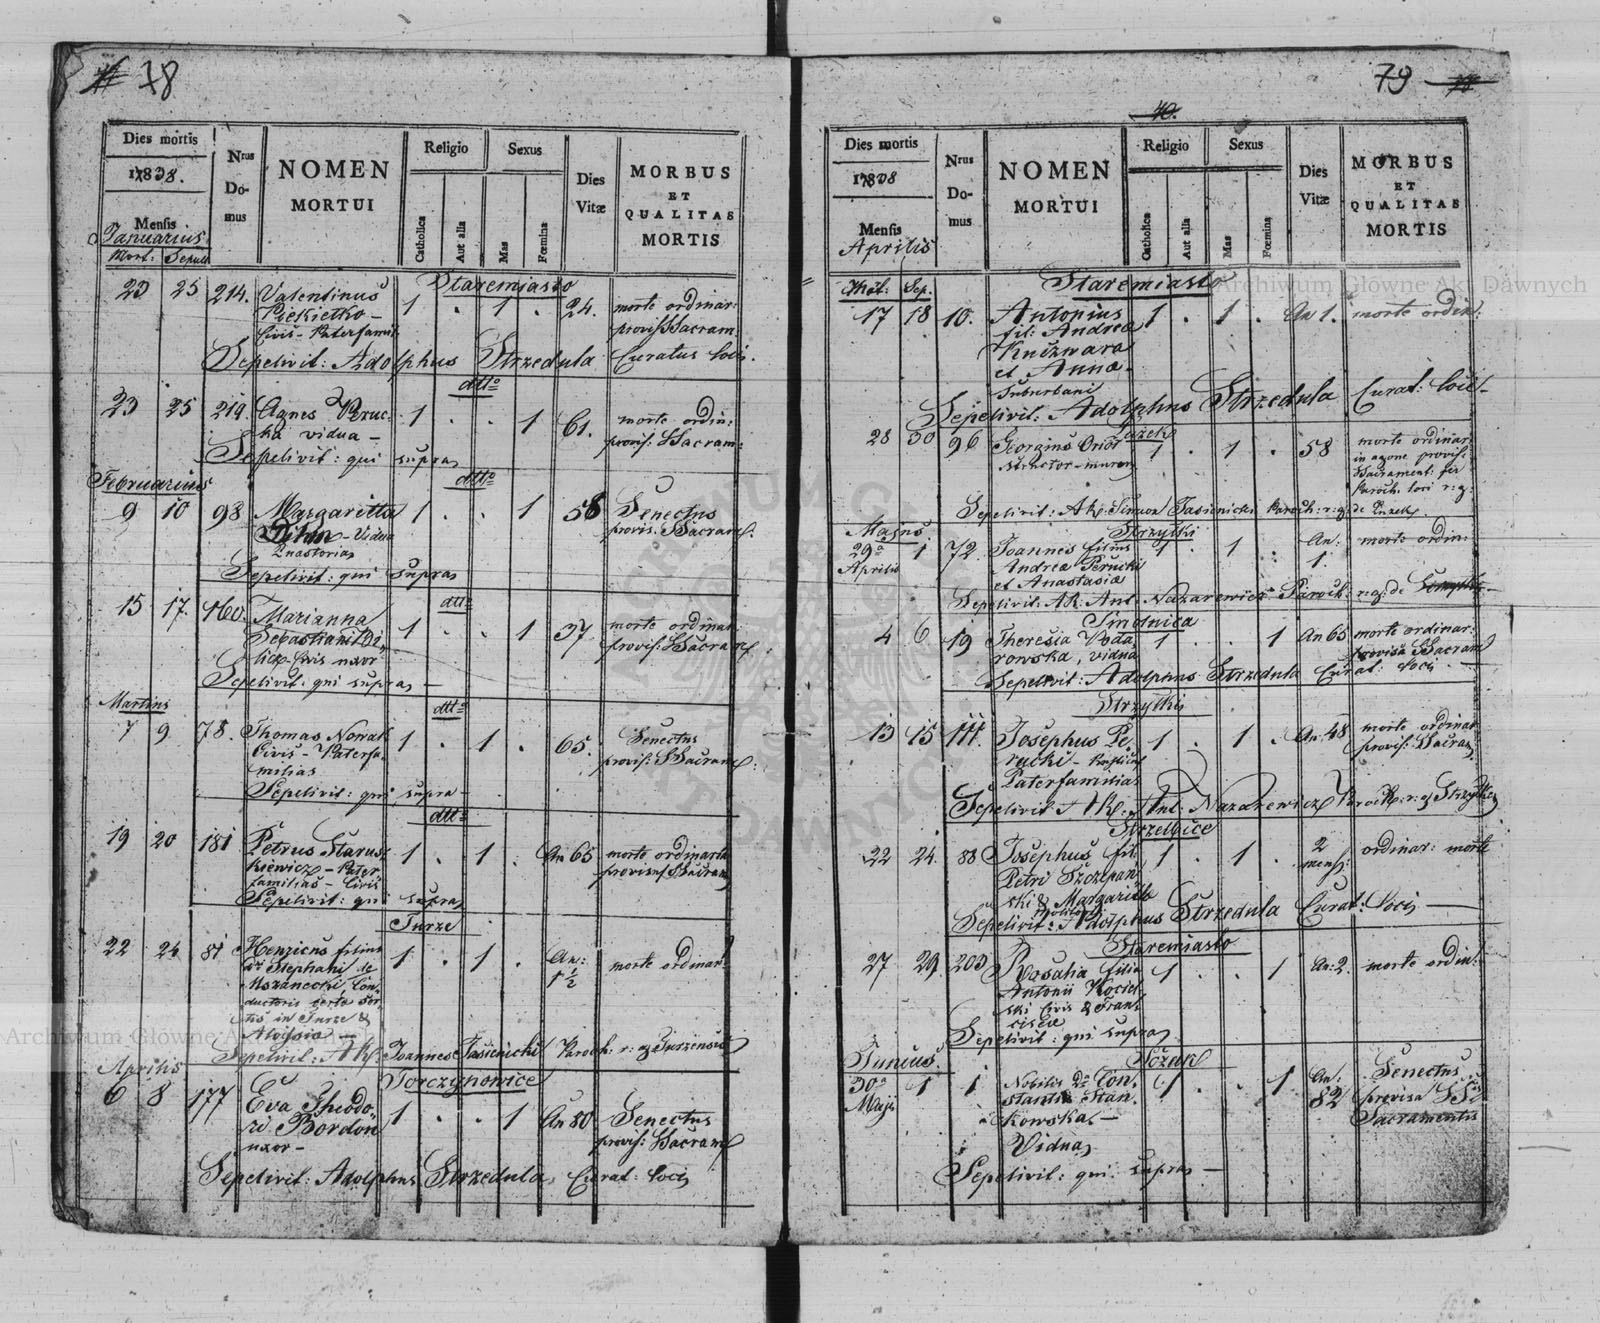 78
Dies mortis
1838.
Mensis
Januarius
Mort: Sepult
Nrus
Do-
mus
NOMEN
MORTUI
Religio
Catholica
Aut alia
Sexus
Mas
Fœmina
Dies
Vitæ
MORBUS
ET
QUALITAS
MORTIS
Staremiasto
23 25 214. Valentinus 1 . 1 . 24. morte ordinar:
Piekietko – provis SSacram
Civis – Paterfamil
Sepelivit: Adolphus Strzedula Curatus loci.
dtto
23 25 219. Agnes Peruc- 1 . . 1 61. morte ordin:
ka vidua – provis: SSacram:
Sepelivit: qui supra
Februarius
dtto
9 10 98 Margaretta 1 . . 1 58 Senectus
Vidua provis. SSacram.
Sepelivit: qui supra
dtto
15 17. 160. Marianna 1 . . 1 37 morte ordinar:
Sebastiani provis: SSacram
civis uxor
Sepelivit: qui supra –
Martius
dtto
7 9 78. Thomas Nowak 1 . 1 . 65. Senectus
Civis – Paterfa- provis: SSacram:
milias
Sepelivit: qui supra –
dtto
19 20 181 Petrus Starus- 1 . 1 . An 65 morte ordinaria
kiewicz – Pater provisus SSacram
familias – Civis
Sepelivit: qui supra
Turze
22 24 81 Henricus filius 1 . 1 . An: morte ordinar:
Stephani de 1 1/2
Con-
ductoris
in Turze &
Aloysia
Sepelivit: AR. Joannes Jasienicki Paroch: r: g: Turzensis
Aprilis
Torczynowice
6 8 177 Eva Theodo- 1 . . 1 An 80 Senectus
ri Bordon provis: SSacram
uxor –
Sepelivit: Adolphus Strzedula Curat: loci
79
40.
Dies mortis
1838
Mensis
Aprilis
Mot. Sep.
Nrus
Do-
mus
NOMEN
MORTUI
Religio
Catholica
Aut alia
Sexus
Mas
Fœmina
Dies
Vitæ
MORBUS
ET
QUALITAS
MORTIS
Staremiasto
17 18 10. Antonius 1 . 1 . An 1. morte ordin:
fil: Andrea
Kuczwara
et Anna –
Suburbani
Sepelivit: Adolphus Strzedula Curat: loci –
28 30 96 Georgius 1 . 1 . 58 morte ordinar:
structor murar in agone provis:
Sacrament: per
Paroch. loci r: g:
Sepelivit: AR: Simeon Jasienicki Paroch: r: g: de
Majus
Strzylki
29a 1 72. Joannes filius 1 . 1 . An: morte ordin:
Aprilis Andrea Perucki 1.
et Anastasia
Sepelivit: AR. Ant. Nazarewicz Paroch: r: g: de
4 6 19 Theresia Woda- 1 . . 1 An 65 morte ordinar:
rowska, vidua provisa SSacram
Sepelivit: Adolphus Strzedula Curat: loci –
Strzylki
13 15 111. Josephus Pe- 1 . 1 . An: 48 morte ordinar
rucki – provis: SSacram
Paterfamilias
Sepelivit AR. Ant. Nazarewicz Paroch: r: g: Strzylki
Strzelbice
22 24. 88 Josephus fil: 1 . 1 . 2 ordinar: morte
Petri Szczepan- mens:
ski & Margaritta
Sepelivit: Adolphus Strzedula Curat: Loci –
Staremiasto
27 29 203 Rosalia filia 1 . . 1 An: 2. morte ordin:
Antonii Kociel-
ski Civis & Fran-
ciscæ
Sepelivit: qui supra
Junius
30a 1 1 Nobilis Da Con- 1 . . 1 An: Senectus
Maji stantia Stan- 82 provisa SSis
kowska – Sacramentis
Vidua
Sepelivit: qui supra –
Archiwum Główne Akt Dawnych
Archiwum Główne Akt Dawnych